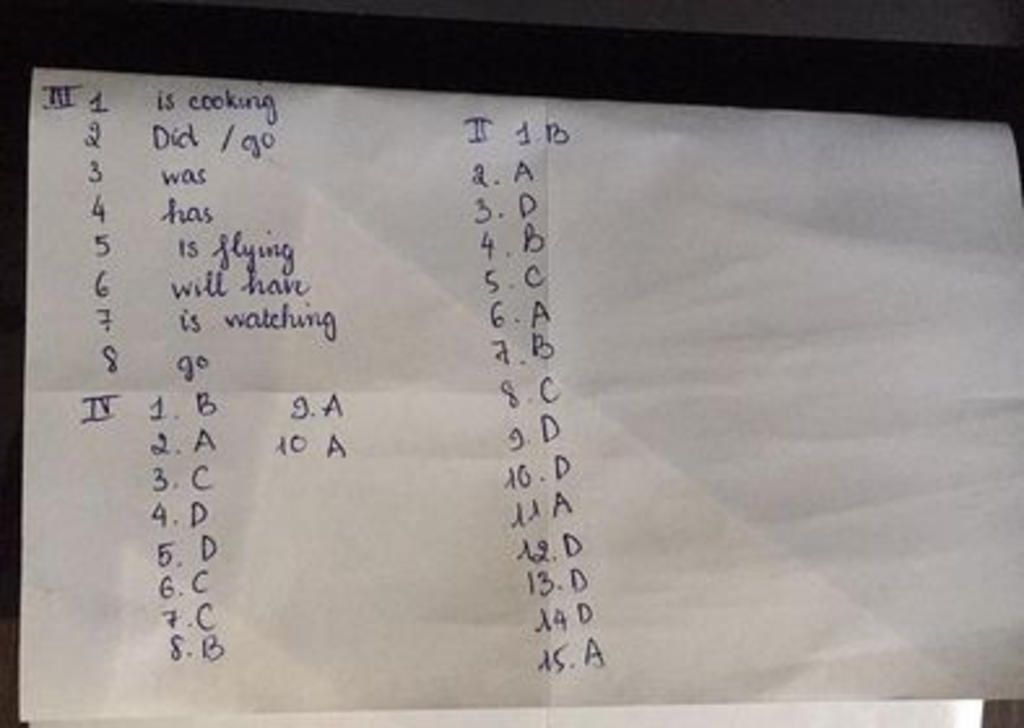 III 1 is cooking
2 Did / go
3 was
4 has
5 Is flying
6 will have
7 is watching
8 go
IV 1. B 9. A
2. A 10 A
3. C
4. D
5. D
6. C
7. C
8. B
II 1. B
2. A
3. D
4. B
5. C
6. A
7. B
8. C
9. D
10. D
11 A
12. D
13. D
14 D
15. A